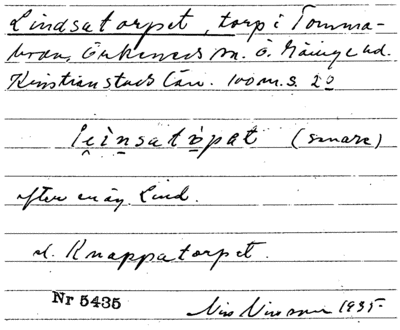 Lindsatorpet, torp i Tomma-
boda, Örkeneds sn. Ö. Göinge hd.
Kristianstads län. 100 m. s. 20
leinsatòpat (snarc)
efter en åb. Lind.
el. Knappatorpet.
Nr 5435 Nils Nilsson 1935.